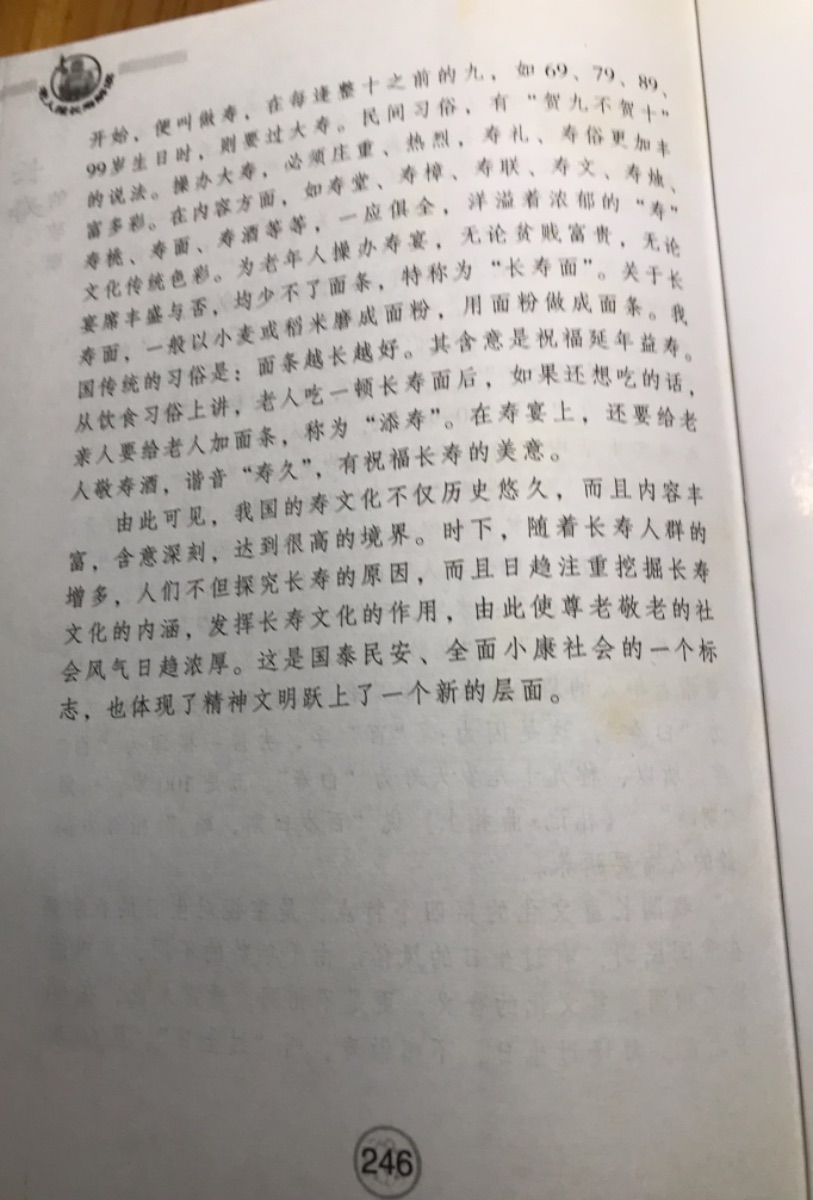 开始，便叫做寿，在每逢整十之前的九，如69、79、89、
99岁生日时，则要过大寿。民间习俗，有“贺九不贺十”
的说法。操办大寿，必须庄重、热烈，寿礼、寿俗更加丰
富多彩。在内容方面，如寿堂、寿樟、寿联、寿文、寿烛、
寿桃、寿面、寿酒等等，一应俱全，洋溢着浓郁的“寿”
文化传统色彩。为老年人操办寿宴，无论贫贱富贵，无论
宴席丰盛与否，均少不了面条，特称为“长寿面”。关于长
寿面，一般以小麦或稻米磨成面粉，用面粉做成面条。我
国传统的习俗是：面条越长越好。其含意是祝福延年益寿。
从饮食习俗上讲，老人吃一顿长寿面后，如果还想吃的话，
亲人要给老人加面条，称为“添寿”。在寿宴上，还要给老
人敬寿酒，谐音“寿久”，有祝福长寿的美意。
由此可见，我国的寿文化不仅历史悠久，而且内容丰
富，含意深刻，达到很高的境界。时下，随着长寿人群的
增多，人们不但探究长寿的原因，而且日趋注重挖掘长寿
文化的内涵，发挥长寿文化的作用，由此使尊老敬老的社
会风气日趋浓厚。这是国泰民安、全面小康社会的一个标
志，也体现了精神文明跃上了一个新的层面。
246